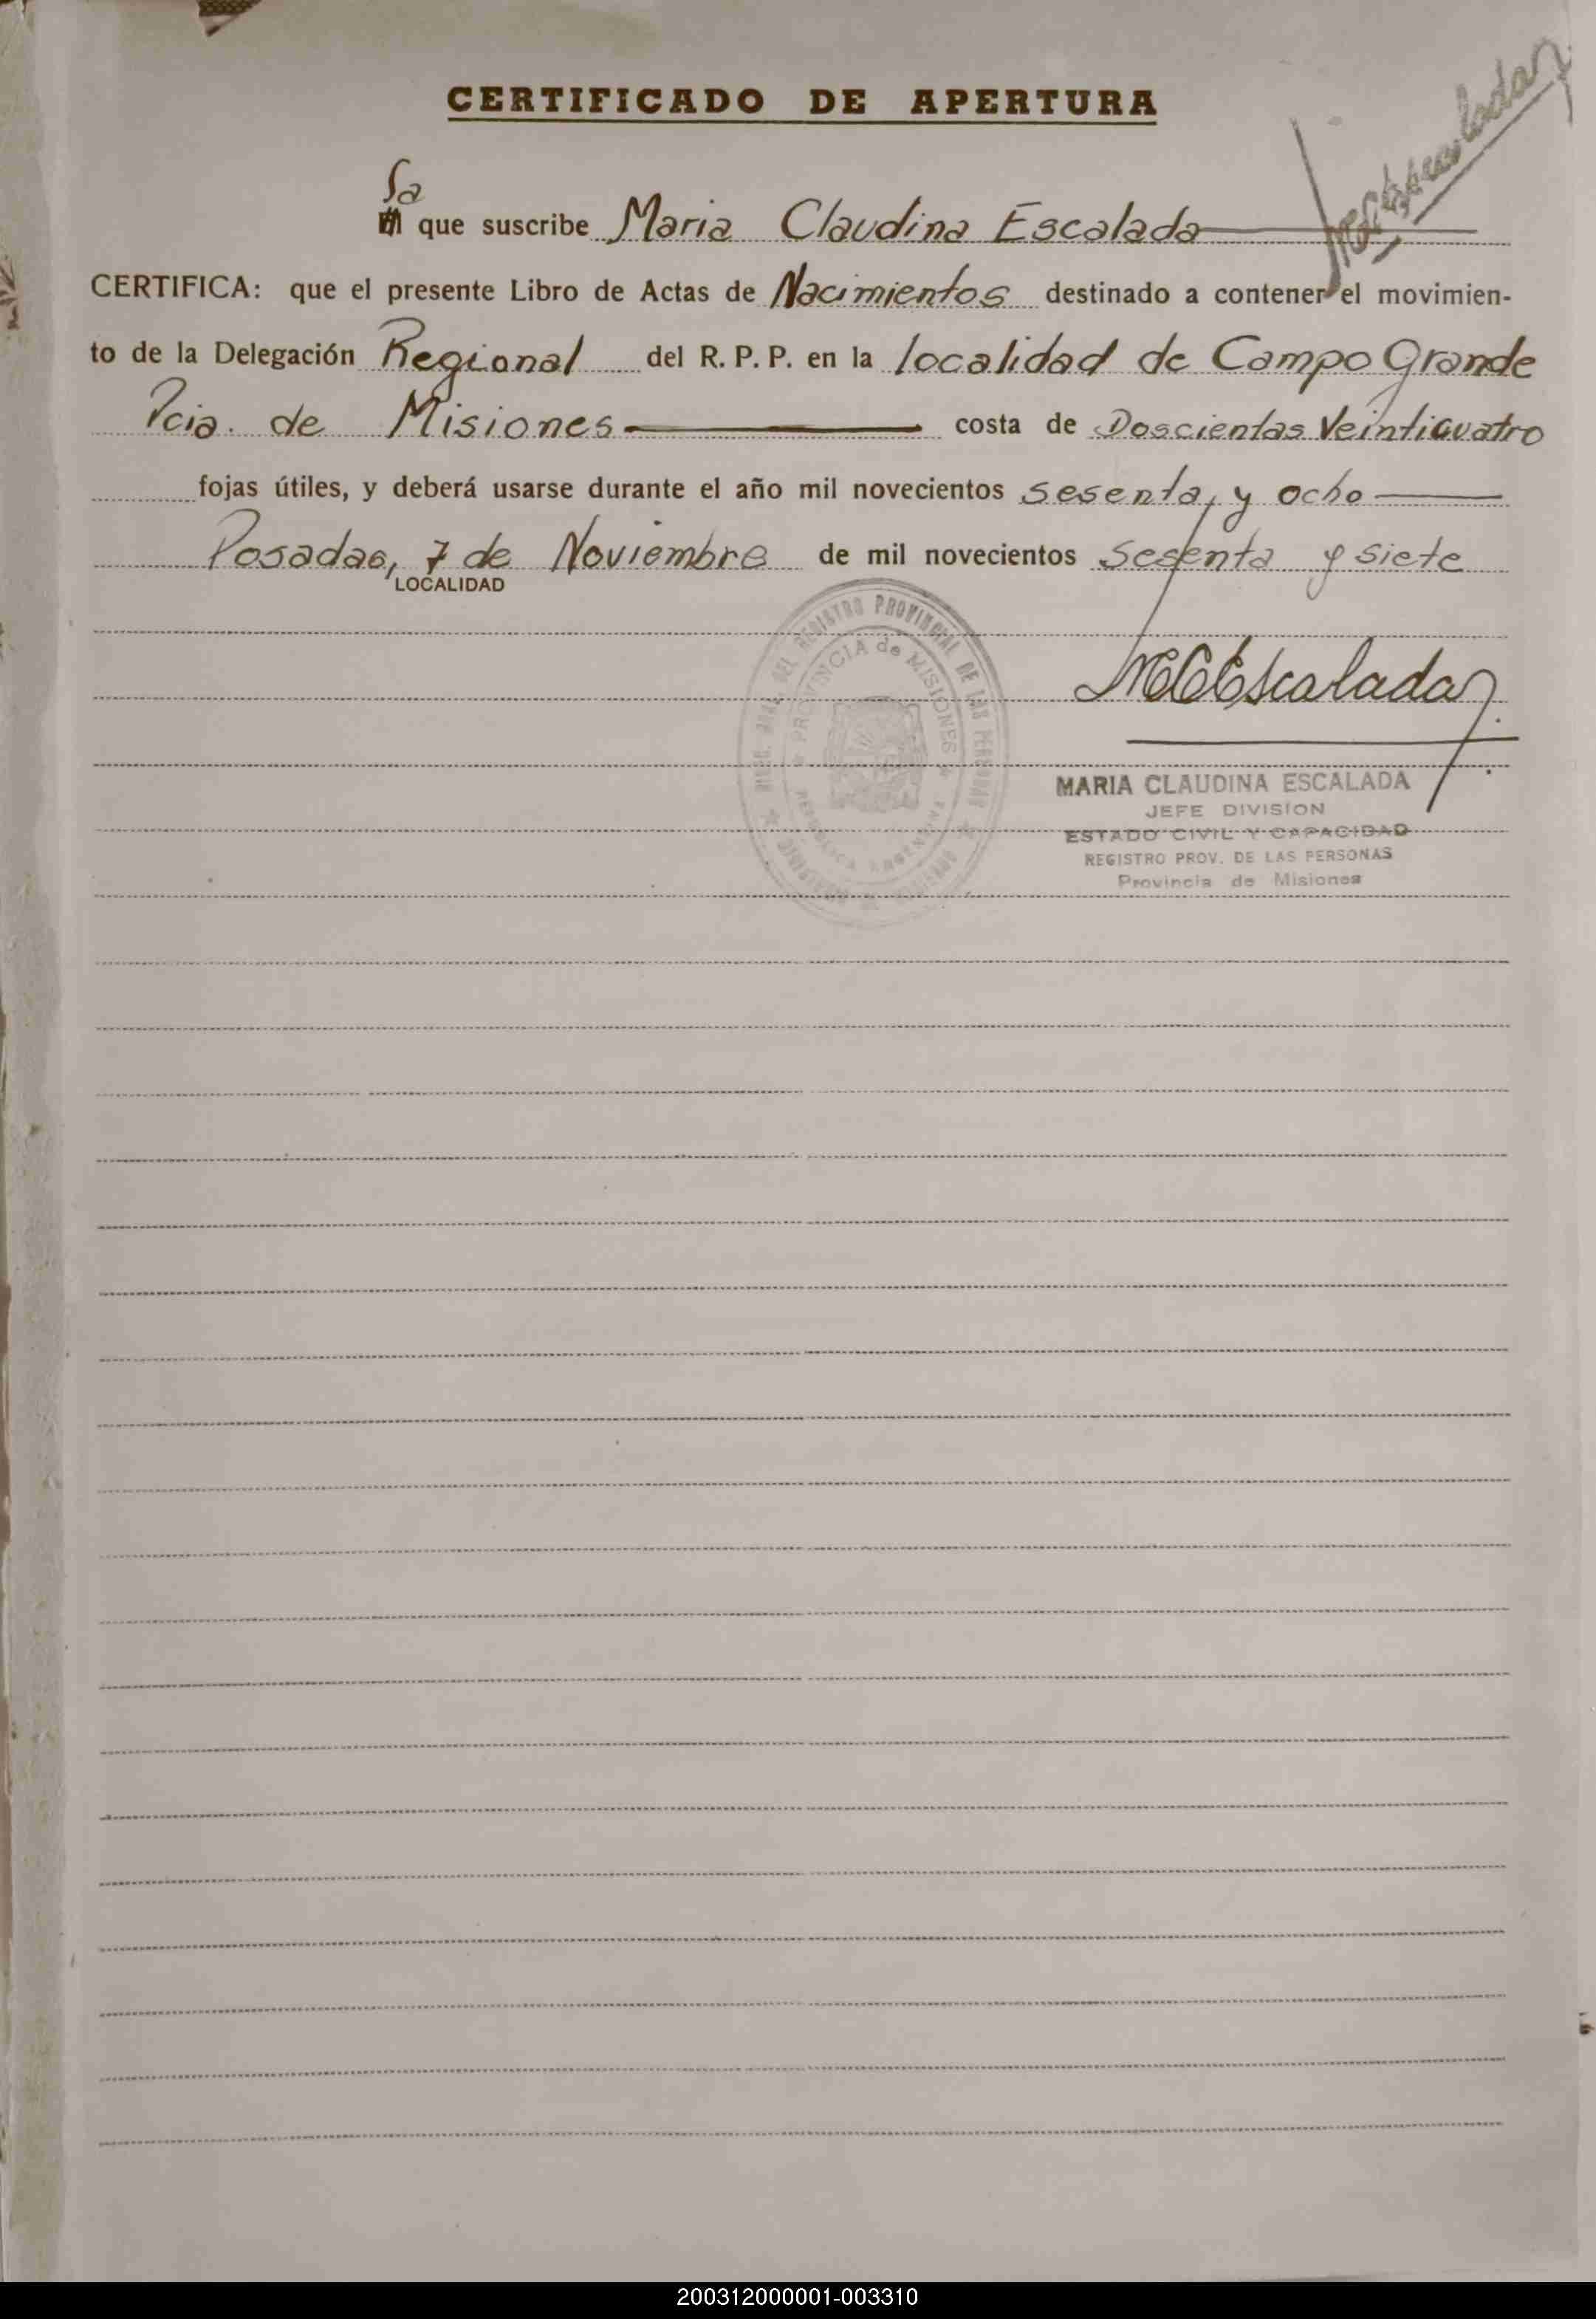 CERTIFICADO DE APERTURA
La
El que suscribe Maria Claudina Escalada
CERTIFICA: que el presente Libro de Actas de Nacimientos destinado a contener el movimien-
to de la Delegación Regional del R. P. P. en la localidad de Campo Grande
Pcia. de Misiones costa de Doscientas Veinticuatro
fojas útiles, y deberá usarse durante el año mil novecientos sesenta y ocho
Posadas, 7 de Noviembre de mil novecientos Sesenta y siete
LOCALIDAD
DEL REGISTRO PROVINCIAL DE LAS PERSONAS
PROVINCIA de MISIONES
REPUBLICA ARGENTINA
MCEscalada
MARIA CLAUDINA ESCALADA
JEFE DIVISION
ESTADO CIVIL Y CAPACIDAD
REGISTRO PROV. DE LAS PERSONAS
Provincia de Misiones
200312000001-003310